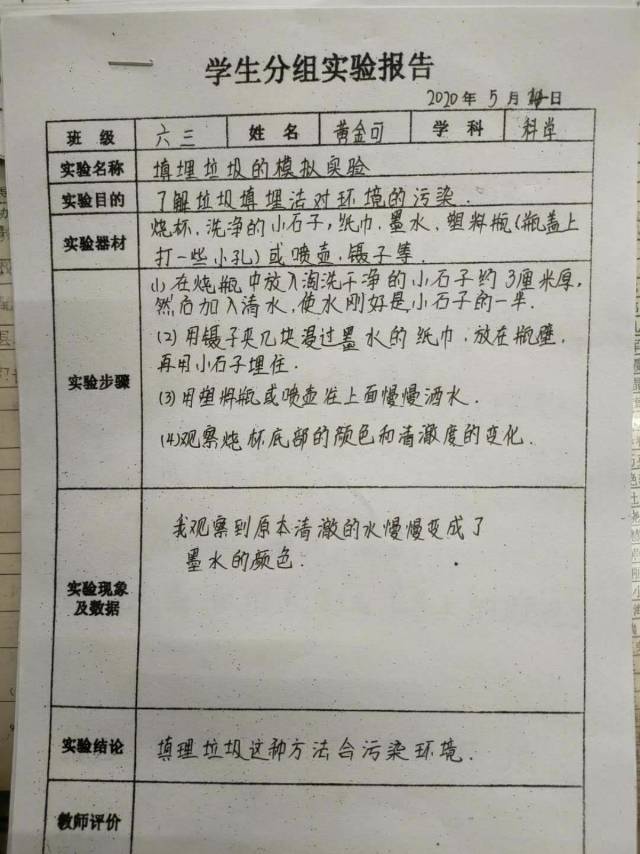 学生分组实验报告
2020年 5月 日
班 级 六三 姓 名 黄金可 学 科 科学
实验名称 填埋垃圾的模拟实验
实验目的 了解垃圾填埋法对环境的污染.
实验器材 烧杯、洗净的小石子,纸巾、墨水、塑料瓶(瓶盖上
打一些小孔)或喷壶,镊子等.
实验步骤
(1)在烧瓶中放入淘洗干净的小石子约3厘米厚,
然后加入清水,使水刚好是小石子的一半.
(2)用镊子夹几块浸过墨水的纸巾,放在瓶壁,
再用小石子埋住.
(3)用塑料瓶或喷壶在上面慢慢洒水.
(4)观察烧杯底部的颜色和清澈度的变化.
实验现象
及数据
我观察到原本清澈的水慢慢变成了
墨水的颜色.
实验结论 填理垃圾这种方法会污染环境.
教师评价